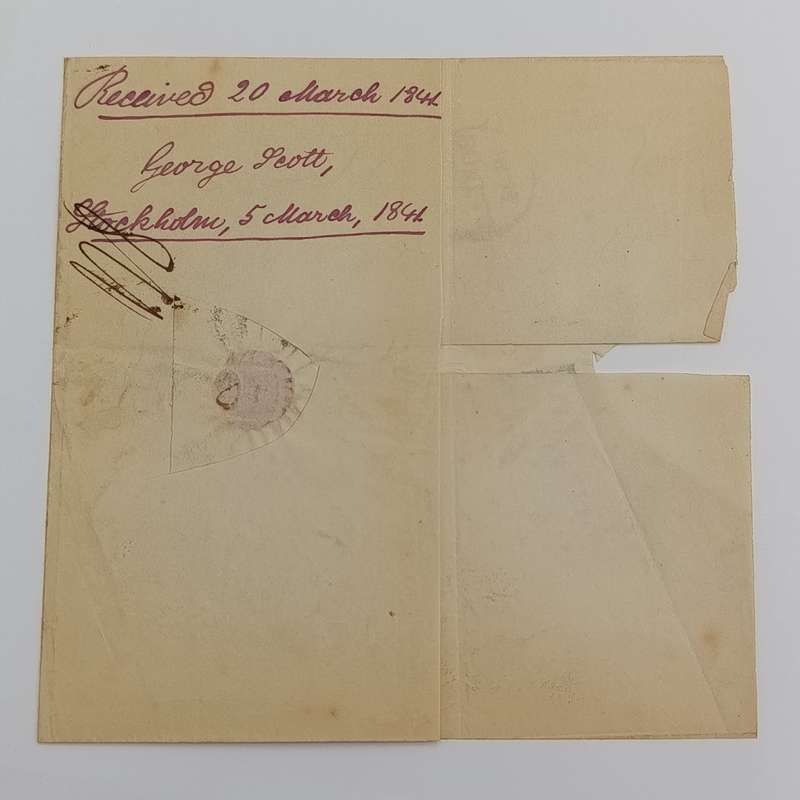 Received 20 March 1841
George Scott,
Stockholm, 5 March, 1841